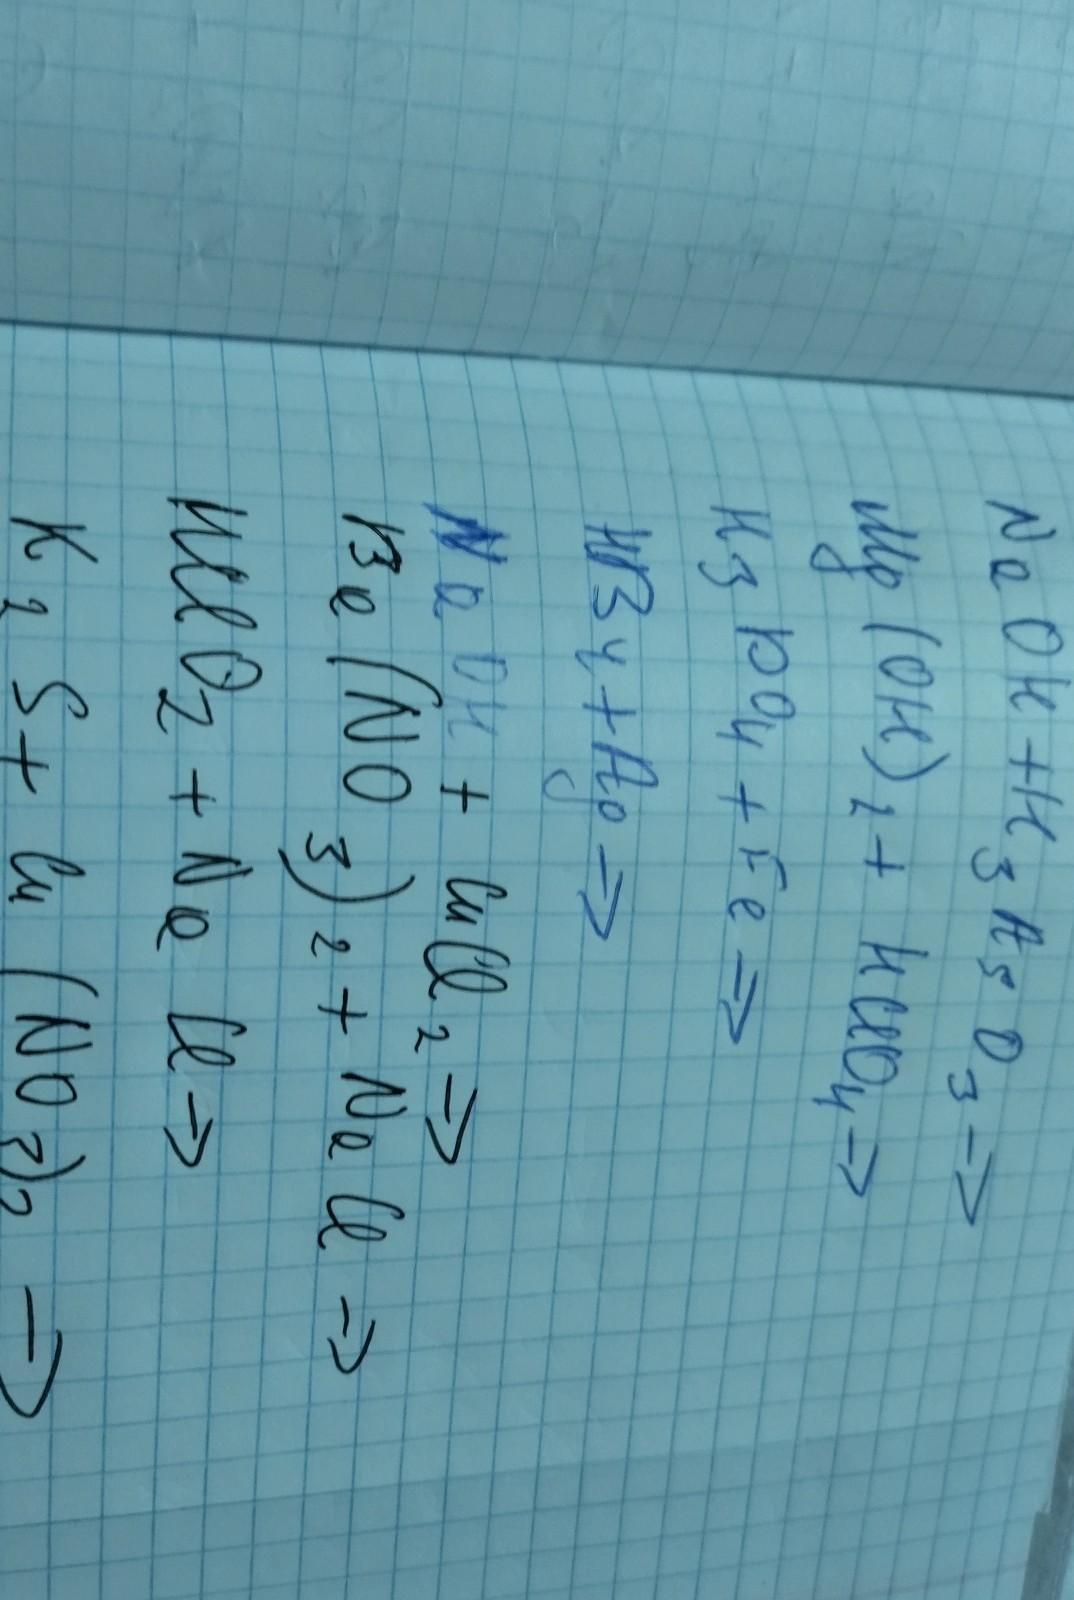 NaOH + H3AsO3 →
Mg(OH)2 + HClO4 →
H3PO4 + Fe ⇒
HBr + Ag ⇒
NaOH + CuCl2 ⇒
Be(NO3)2 + NaCl →
HClO2 + NaCl →
K2S + Cu(NO3)2 →